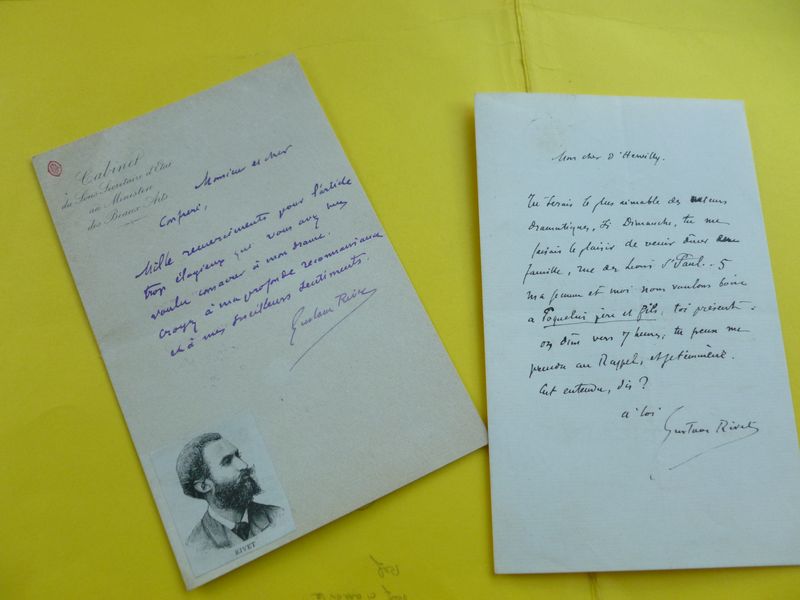 Cabinet
du Sous-Secrétaire d'Etat
au Ministère
des Beaux-Arts
Monsieur et cher
Confrère,
Mille remerciements pour l'article
trop élogieux que vous avez bien
voulu consacrer à mon drame.
Croyez à ma profonde reconnaissance
et à mes meilleurs sentiments.
Gustave Rivet
RIVET
Mon cher d'Hervilly.
Tu serais le plus aimable des auteurs
dramatiques, si Dimanche, tu me
faisais le plaisir de venir dîner en
famille, rue des Lions St Paul. 5
ma femme et moi nous voulons boire
à Poquelin père et fils, toi présent.
on dîne vers 7 heures; tu peux me
prendre au Rappel, et je t'emmène.
C'est entendu, dis?
à toi
Gustave Rivet